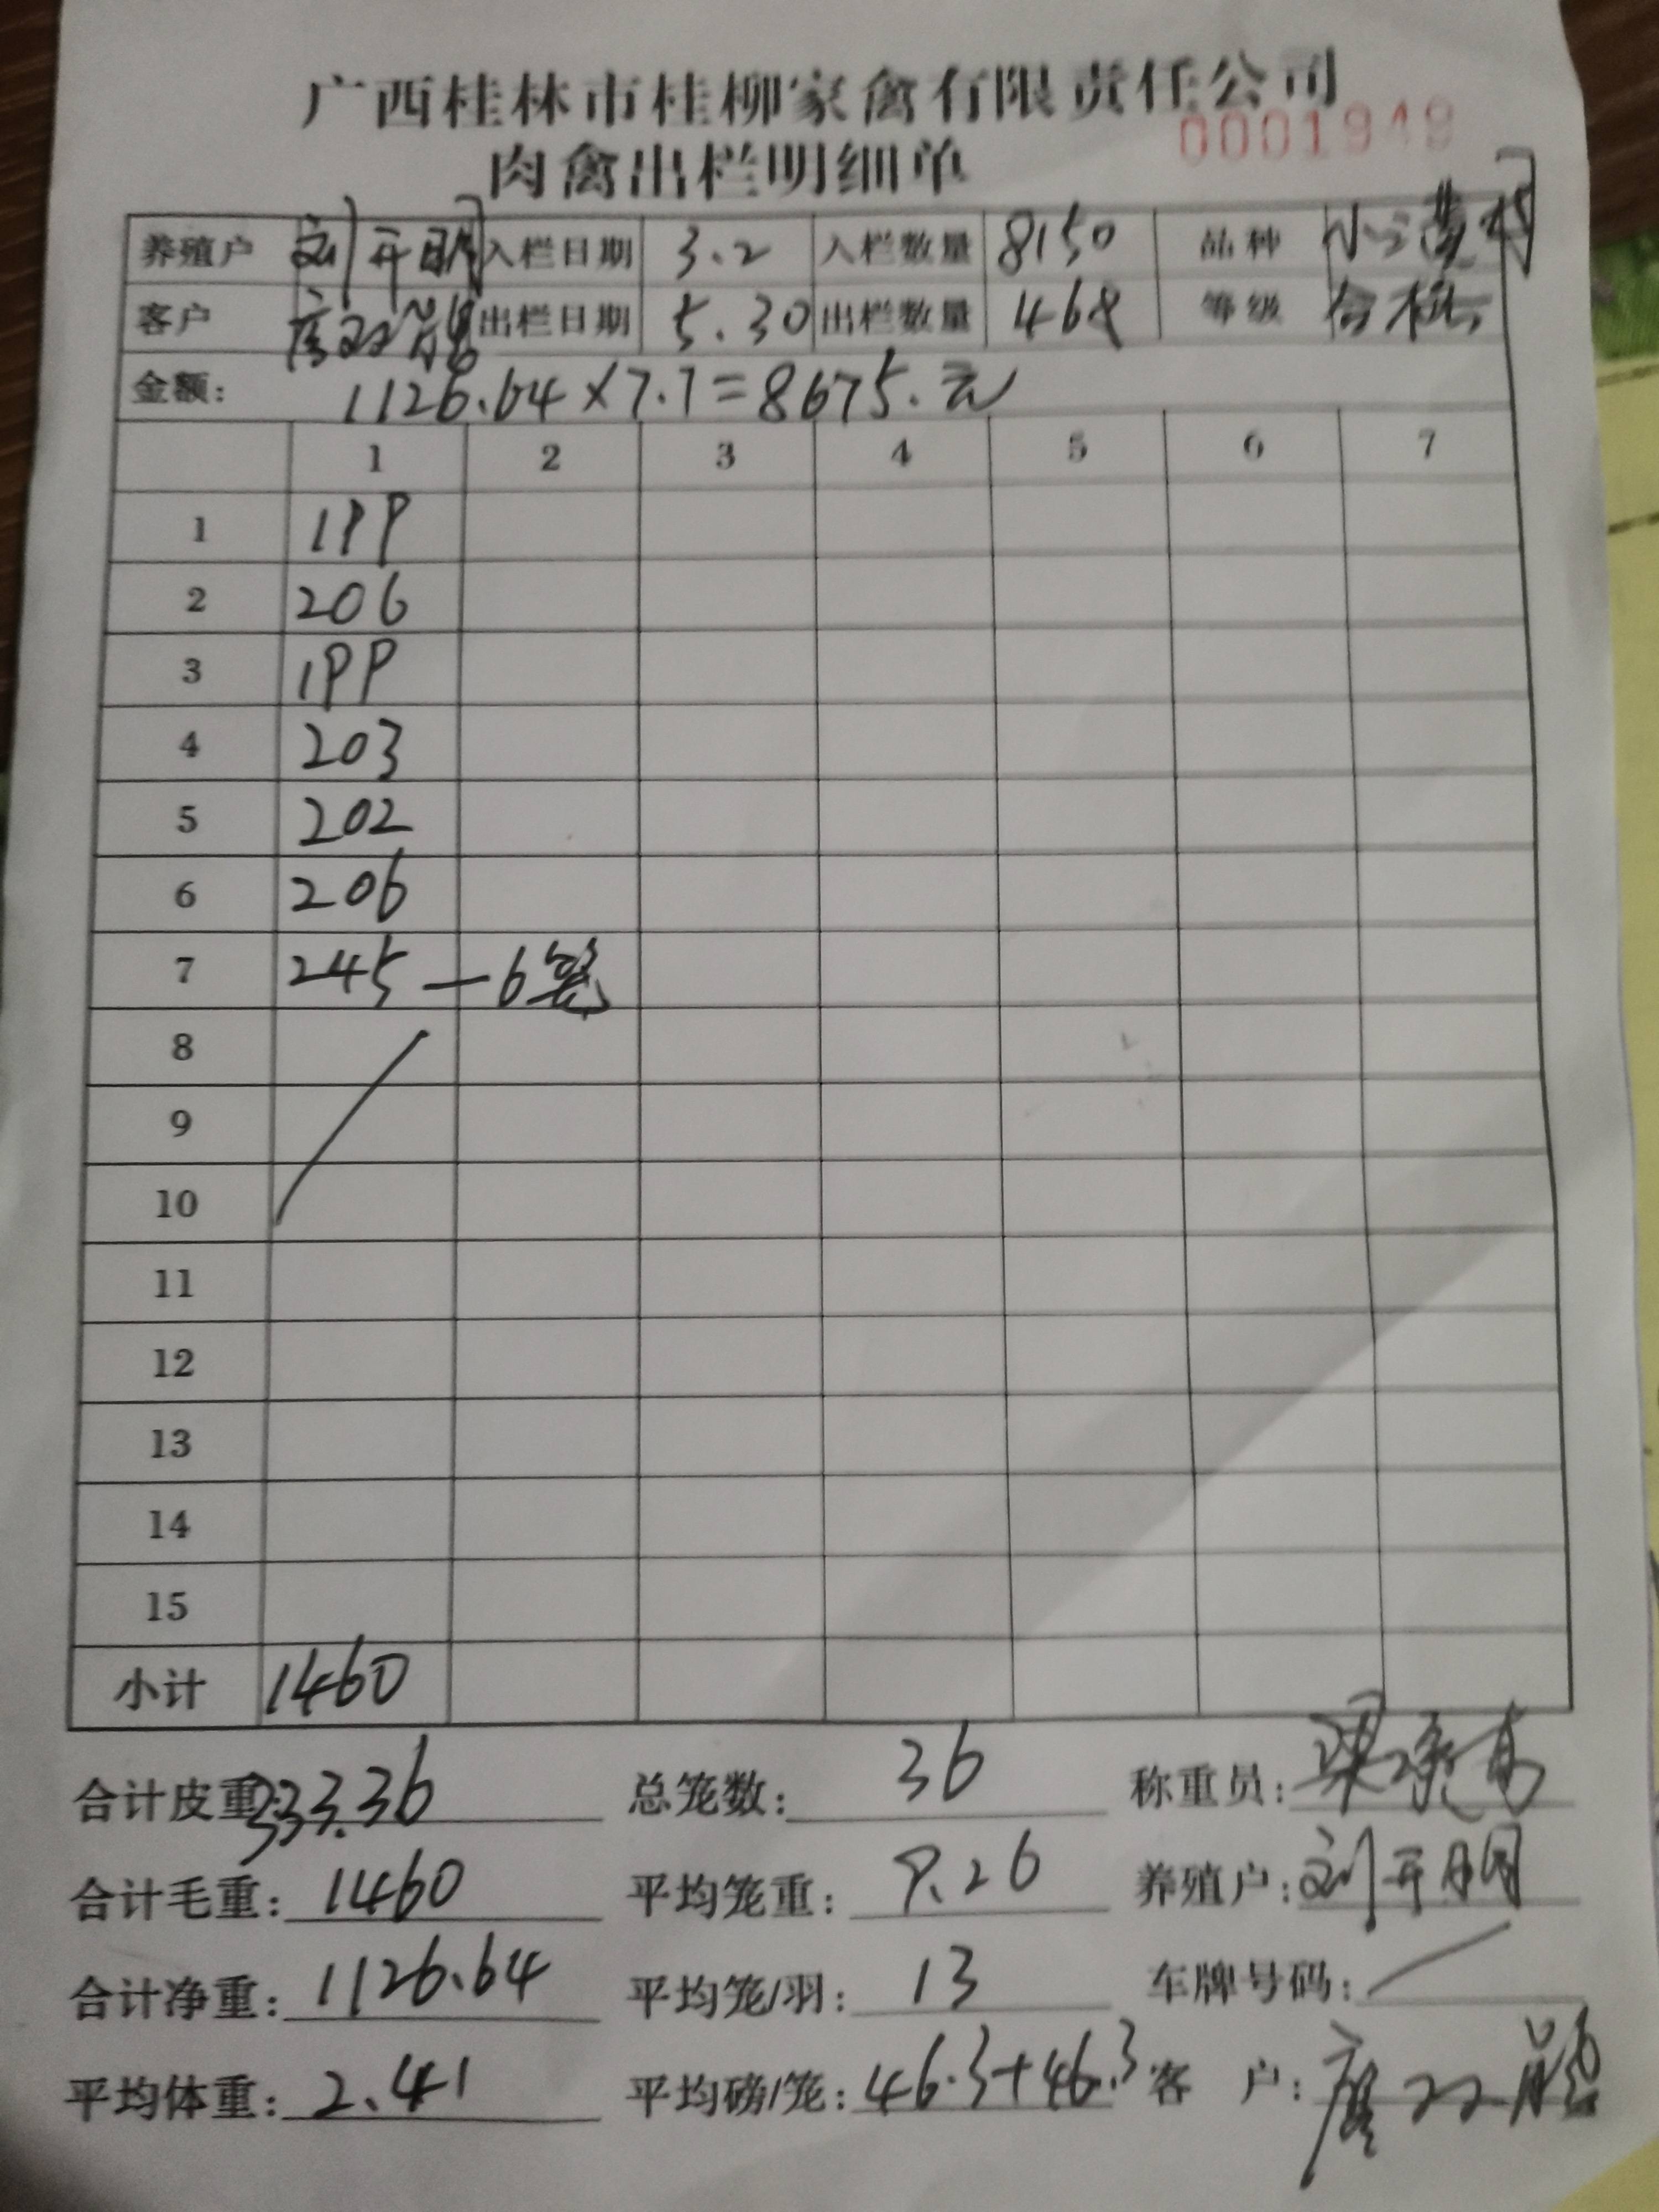 广西桂林市桂柳家禽有限责任公司
0001949
肉禽出栏明细单
养殖户 刘开明 入栏日期 3.2 入栏数量 8150 品种
客户 出栏日期 5.30 出栏数量 468 等级 合格
金额: 1126.64×7.7=8675.元
1 2 3 4 5 6 7
1 199
2 206
3 199
4 203
5 202
6 206
7 245—6笼
8
9
10
11
12
13
14
15
小计 1460
合计皮重: 333.36 总笼数: 36 称重员:
合计毛重: 1460 平均笼重: 9.26 养殖户: 刘开明
合计净重: 1126.64 平均笼/羽: 13 车牌号码:
平均体重: 2.41 平均磅/笼: 46.3+46.3 客 户: